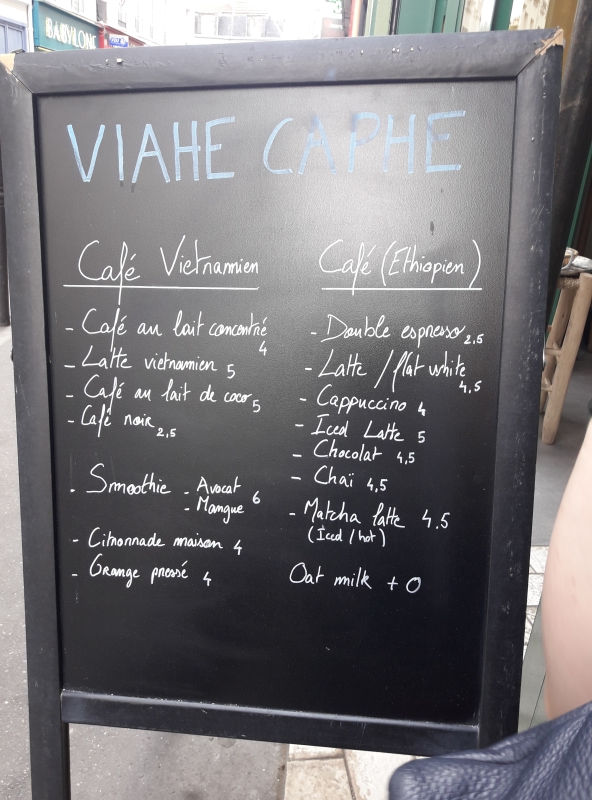 BABYLONE
VIAHE CAPHE
Café Vietnamien
- Café au lait concentré 4
- Latte vietnamien 5
- Café au lait de coco 5
- Café noir 2,5
. Smoothie - Avocat
- Mangue 6
- Citronnade maison 4
- Orange pressé 4
Café (Ethiopien)
- Double espresso 2,5
- Latte / flat white 4,5
- Cappuccino 4
- Iced Latte 5
- Chocolat 4,5
- Chaï 4,5
- Matcha latte 4.5
(Iced / hot)
Oat milk + 0